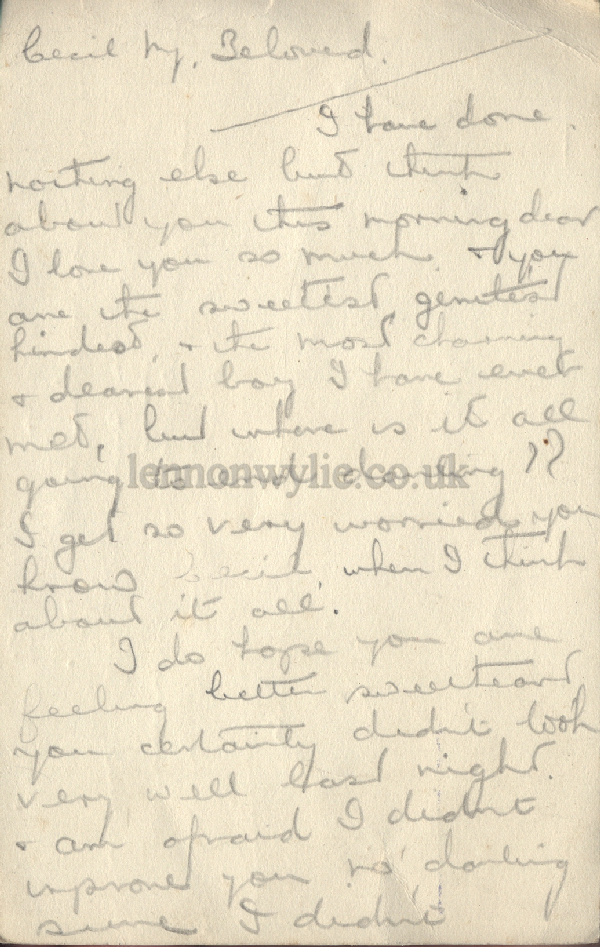 Cecil My, Beloved.
I have done.
nothing else but think
about you this morning dear
I love you so much + you
are the sweetest, gentlest
kindest, + the most charming
+ dearest boy I have ever
met, but where is it all
going to end darling ??
lennonwylie.co.uk
I get so very worried you
know Cecil, when I think
about it all.
I do hope you are
feeling better sweetheart
you certainly didn't look
very well last night.
+ am afraid I didn't
improve you no darling
sure I didn't